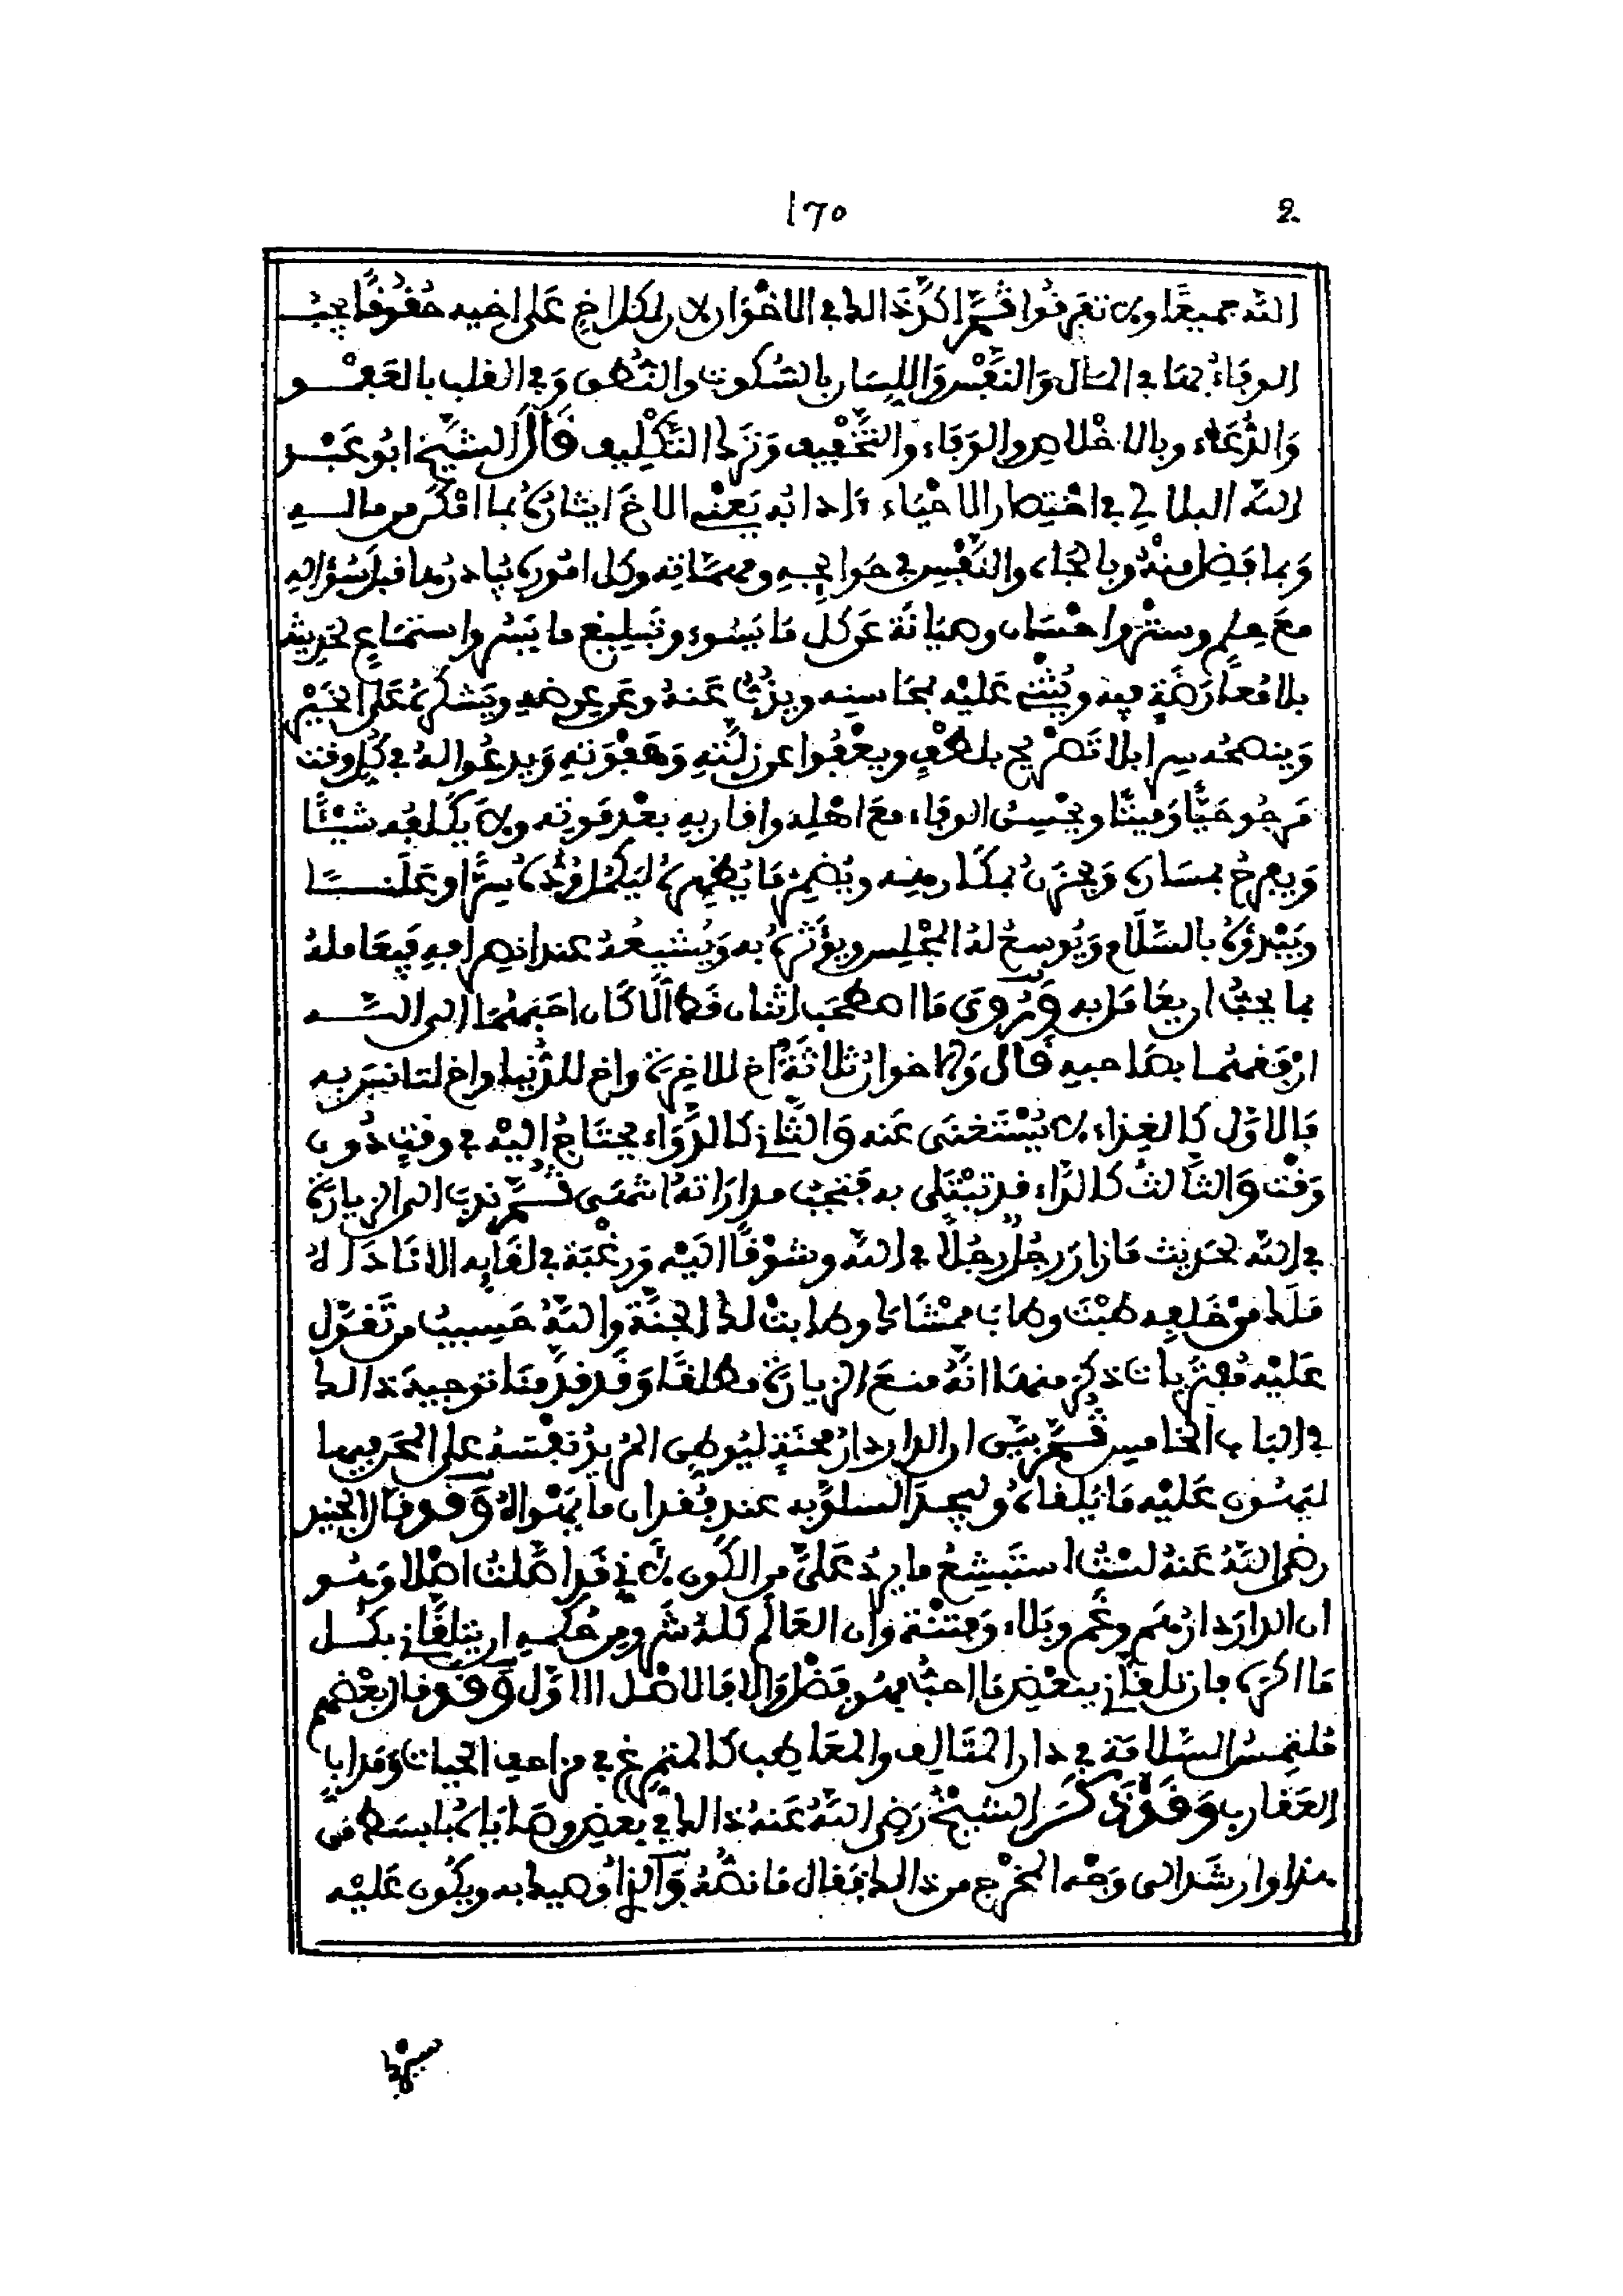 170 2
الله جميعا ولا تفرقوا ثم اكد ذالك في الاخوان لان لكل اخ على اخيه حقوقا يجب
الوفاء بها في المال والنفس واللسان بالسكوت والنطق وفي القلب بالعفو
والدعاء وبالاخلاص والوفاء والتخفيف وترك التكليف قال الشيخ ابو عبد
الله البلالي في اختصار الاحياء وادابه يعني الاخ ايثاره بما امكن من ماله
وبما فضل منه وبالجاه والنفس في حوايجه ومهماته وكل اموره يبادر بها قبل سؤاله
مع علم وستر واحسان وصيانة عن كل ما يسوء وتبليغ ما يسر واستماع لحديثه
بلا معارضة فيه ويثني عليه بمحاسنه ويذب عنه وعن عرضه ويشكره على الخير
وينصحه سرا بلا تصريح بلطف ويعفوا عن زلته وهفوته ويدعوا له في كل وقت
مرجو حيا وميتا ويحسن الوفاء مع اهله واقاربه بعد موته ولا يكلفه شيئا
ويفرح بمساره ويحزن بمكارهه ويضمر ما يظهره ليكمل وده سرا وعلنا
ويبدؤه بالسلام ويوسع له المجلس ويؤثره به ويشيعه عند انصرافه فيعامله
بما يحب ان يعامل به وروي ما اصطحب اثنان قط الا كان احبهما الى الله
ارفقهما بصاحبه قال والاخوان ثلاثة اخ للاخرة واخ للدنيا واخ لتانس به
فالاول كالغذاء لا يستغنى عنه والثاني كالدواء يحتاج اليه في وقت دون
وقت والثالث كالداء قد تبتلى به فتجب مداراته اشهى ثم ندب الى الزيارة
في الله لحديث ما زار رجل رجلا في الله وشوقا اليه ورغبة في لقايه الا ناداه
ملك من خلفه طبت وطاب ممشاك وطابت لك الجنة والله حسيب من تقول
عليه مفتريات ذكر منها انه منع الزيارة مطلقا وقد قدمنا توجيه ذالك
في الباب الخامس ثم بين ان الدار دار محنة ليوطي المريد نفسه على المحن فيها
ليهون عليه ما يلقاه وليجد السلو به عند فقدان ما يهواه وقد قال الجنيد
رضي الله عنه لست استبشع ما يرد علي من الكون لاني قد اصلت اصلا وهو
ان الدار دار هم وغم وبلاء وفتنة وان العالم كله شر ومن حكمه ان يتلقاني بكل
ما اكره فان تلقاني ببعض ما احب فهو فضل والا فالاصل الاول وقد قال بعضهم
ملتمس السلامة في دار المتالف والمعاطب كالمتمرغ في مزاحف الحيات ومداب
العقارب وقد ذكر الشيخ رضي الله عنه ذالك في بعض وصاياه بابسط من
هذا وارشد الى وجه المخرج من ذالك فقال ما نصه والذي اوصيك به ويكون عليه
سيرها